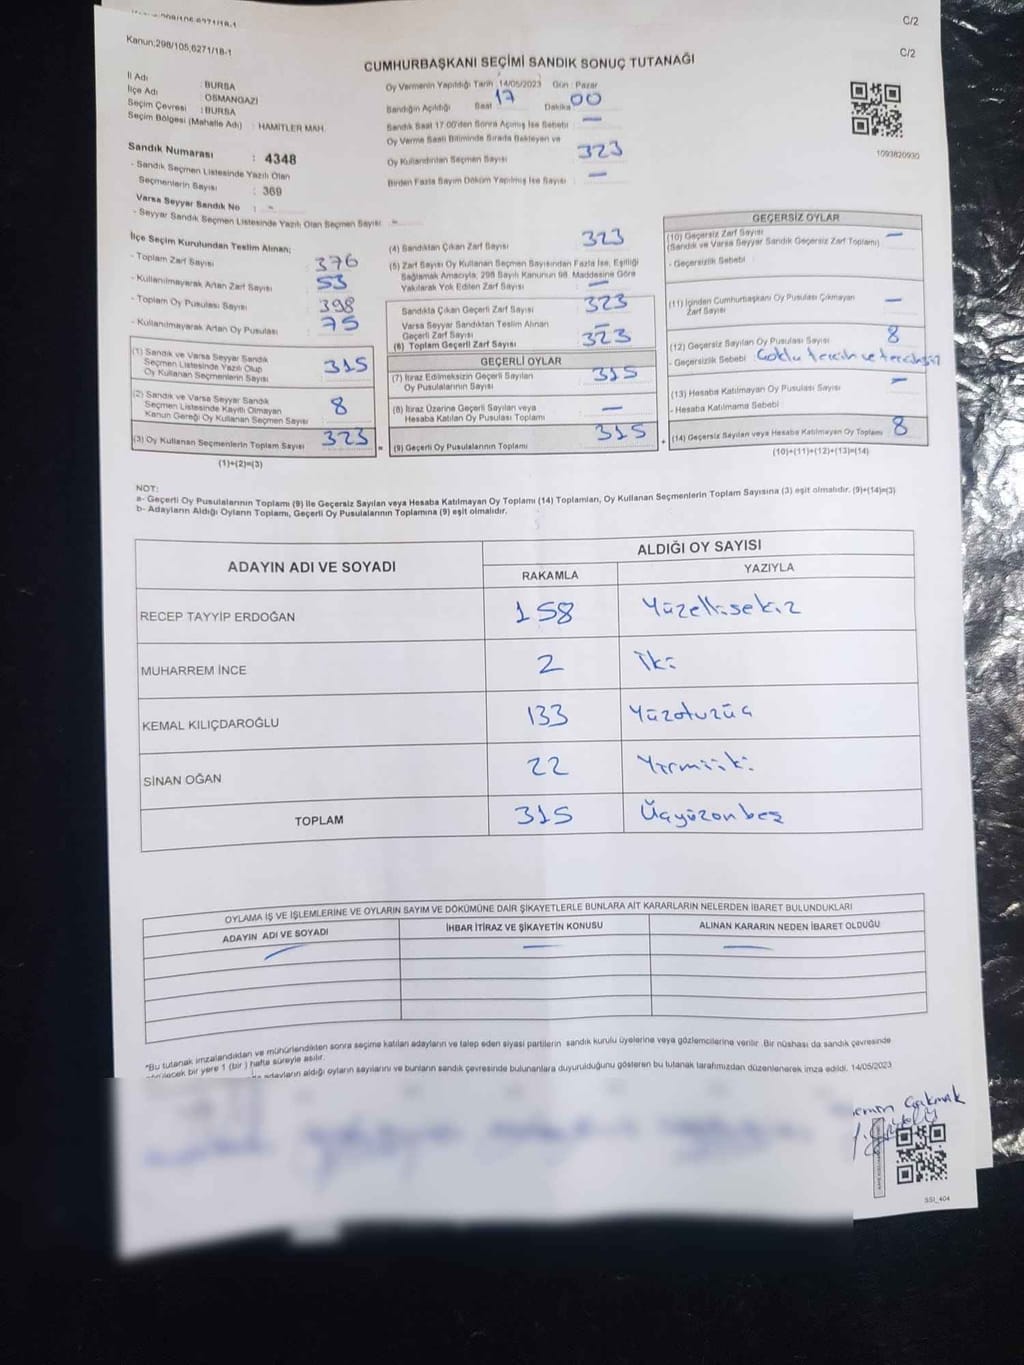 C/2
Kanun:298/105,6271/18-1
C/2
CUMHURBAŞKANI SEÇİMİ SANDIK SONUÇ TUTANAĞI
İl Adı : BURSA
İlçe Adı : OSMANGAZİ
Seçim Çevresi : BURSA
Seçim Bölgesi (Mahalle Adı) : HAMİTLER MAH.
Sandık Numarası : 4348
- Sandık Seçmen Listesinde Yazılı Olan
Seçmenlerin Sayısı : 369
Varsa Seyyar Sandık No : -
- Seyyar Sandık Seçmen Listesinde Yazılı Olan Seçmen Sayısı -
Oy Vermenin Yapıldığı Tarih : 14/05/2023 Gün : Pazar
Sandığın Açıldığı Saat 17 Dakika 00
Sandık Saat 17.00'den Sonra Açılmış İse Sebebi : —
Oy Verme Saati Bitiminde Sırada Bekleyen ve
Oy Kullandırılan Seçmen Sayısı 323
Birden Fazla Sayım Döküm Yapılmış İse Sayısı : —
1093820930
İlçe Seçim Kurulundan Teslim Alınan;
- Toplam Zarf Sayısı 376
- Kullanılmayarak Artan Zarf Sayısı 53
- Toplam Oy Pusulası Sayısı 398
- Kullanılmayarak Artan Oy Pusulası 75
(1) Sandık ve Varsa Seyyar Sandık
Seçmen Listesinde Yazılı Olup
Oy Kullanan Seçmenlerin Sayısı 315
(2) Sandık ve Varsa Seyyar Sandık
Seçmen Listesinde Kayıtlı Olmayan
Kanun Gereği Oy Kullanan Seçmen Sayısı 8
(3) Oy Kullanan Seçmenlerin Toplam Sayısı 323
(1)+(2)=(3)
(4) Sandıktan Çıkan Zarf Sayısı 323
(5) Zarf Sayısı Oy Kullanan Seçmen Sayısından Fazla İse, Eşitliği
Sağlamak Amacıyla, 298 Sayılı Kanunun 98. Maddesine Göre
Yakılarak Yok Edilen Zarf Sayısı —
Sandıkta Çıkan Geçerli Zarf Sayısı 323
Varsa Seyyar Sandıktan Teslim Alınan
Geçerli Zarf Sayısı —
(6) Toplam Geçerli Zarf Sayısı 323
GEÇERLİ OYLAR
(7) İtiraz Edilmeksizin Geçerli Sayılan
Oy Pusulalarının Sayısı 315
(8) İtiraz Üzerine Geçerli Sayılan veya
Hesaba Katılan Oy Pusulası Toplamı —
(9) Geçerli Oy Pusulalarının Toplamı 315
GEÇERSİZ OYLAR
(10) Geçersiz Zarf Sayısı
(Sandık ve Varsa Seyyar Sandık Geçersiz Zarf Toplamı) —
- Geçersizlik Sebebi
(11) İçinden Cumhurbaşkanı Oy Pusulası Çıkmayan
Zarf Sayısı —
(12) Geçersiz Sayılan Oy Pusulası Sayısı 8
- Geçersizlik Sebebi : Çoklu tercih ve tercihsiz
(13) Hesaba Katılmayan Oy Pusulası Sayısı —
- Hesaba Katılmama Sebebi
(14) Geçersiz Sayılan veya Hesaba Katılmayan Oy Toplamı 8
(10)+(11)+(12)+(13)=(14)
NOT:
a- Geçerli Oy Pusulalarının Toplamı (9) ile Geçersiz Sayılan veya Hesaba Katılmayan Oy Toplamı (14) Toplamları, Oy Kullanan Seçmenlerin Toplam Sayısına (3) eşit olmalıdır. (9)+(14)=(3)
b- Adayların Aldığı Oyların Toplamı, Geçerli Oy Pusulalarının Toplamına (9) eşit olmalıdır.
ADAYIN ADI VE SOYADI
ALDIĞI OY SAYISI
RAKAMLA YAZIYLA
RECEP TAYYİP ERDOĞAN 158 Yüzellisekiz
MUHARREM İNCE 2 İki
KEMAL KILIÇDAROĞLU 133 Yüzotuzüç
SİNAN OĞAN 22 Yirmiiki
TOPLAM 315 Üçyüzonbeş
OYLAMA İŞ VE İŞLEMLERİNE VE OYLARIN SAYIM VE DÖKÜMÜNE DAİR ŞİKAYETLERLE BUNLARA AİT KARARLARIN NELERDEN İBARET BULUNDUKLARI
ADAYIN ADI VE SOYADI İHBAR İTİRAZ VE ŞİKAYETİN KONUSU ALINAN KARARIN NEDEN İBARET OLDUĞU
— — —
*Bu tutanak imzalandıktan ve mühürlendikten sonra seçime katılan adayların ve talep eden siyasi partilerin sandık kurulu üyelerine veya gözlemcilerine verilir. Bir nüshası da sandık çevresinde
görülecek bir yere 1 (bir) hafta süreyle asılır.
adayların aldığı oyların sayılarını ve bunların sandık çevresinde bulunanlara duyurulduğunu gösteren bu tutanak tarafımızdan düzenlenerek imza edildi. 14/05/2023
Çakmak
SSI_404